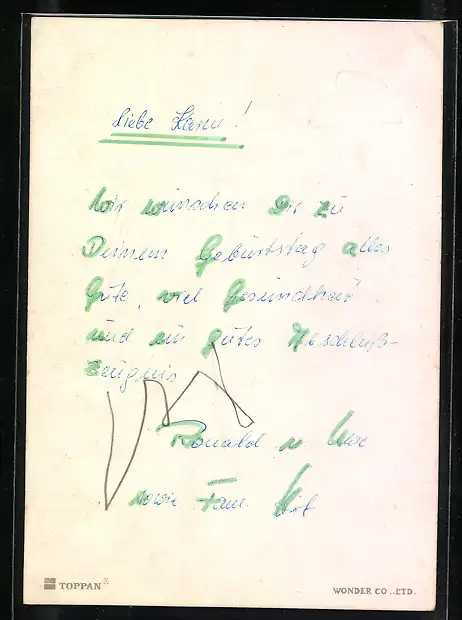 Liebe Karin!
Wir wünschen Dir zu
Deinem Geburtstag alles
Gute, viel Gesundheit
und ein gutes Abschluß-
zeugnis
Ronald u. Uwe
sowie Fam.
TOPPAN
WONDER CO.,LTD.